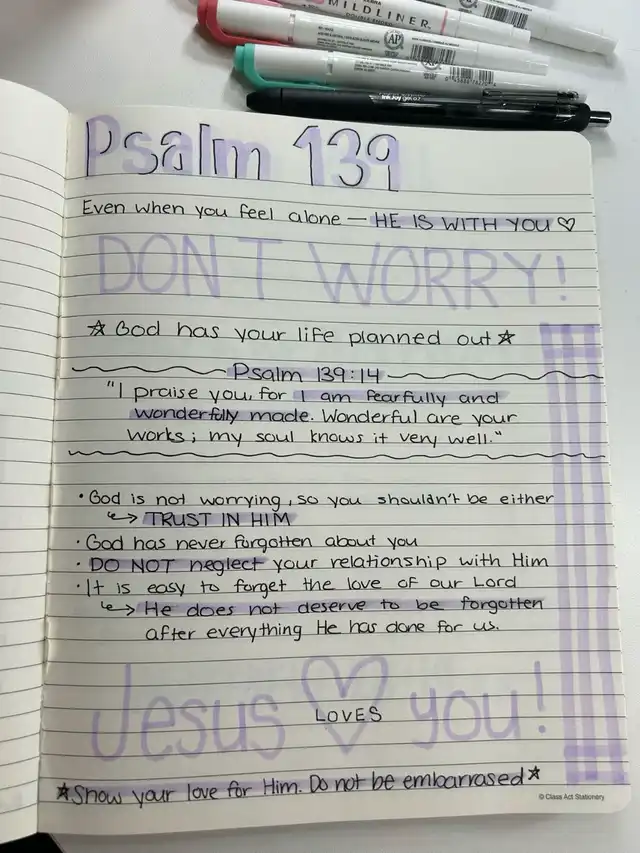 ZEBRA
MILDLINER
AP
AP
InkJoy gel 0.7
Psalm 139
Even when you feel alone — HE IS WITH YOU ♡
DON'T WORRY!
☆ God has your life planned out ☆
Psalm 139:14
"I praise you, for I am fearfully and
wonderfully made. Wonderful are your
works; my soul knows it very well."
• God is not worrying, so you shouldn't be either
↳ TRUST IN HIM
• God has never forgotten about you
• DO NOT neglect your relationship with Him
• It is easy to forget the love of our Lord
↳ He does not deserve to be forgotten
after everything He has done for us.
Jesus ♡ you!
LOVES
☆ Show your love for Him. Do not be embarrased ☆
© Class Act Stationery